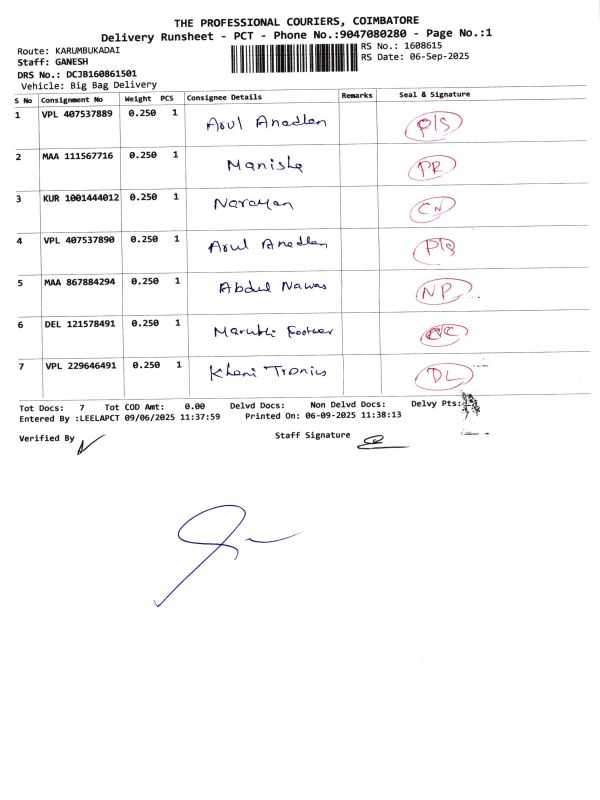 THE PROFESSIONAL COURIERS, COIMBATORE
Delivery Runsheet - PCT - Phone No.:9047080280 - Page No.:1
Route: KARUMBUKADAI RS No.: 1608615
Staff: GANESH RS Date: 06-Sep-2025
DRS No.: DCJB160861501
Vehicle: Big Bag Delivery
S No Consignment No Weight PCS Consignee Details Remarks Seal & Signature
1 VPL 407537889 0.250 1 Arul Anadlan P/S
2 MAA 111567716 0.250 1 Manisha PR
3 KUR 1001444012 0.250 1 Narayan CN
4 VPL 407537890 0.250 1 Arul Anadlan P/S
5 MAA 867884294 0.250 1 Abdul Nawas NP
6 DEL 121578491 0.250 1 Maruthi
7 VPL 229646491 0.250 1 Khani Tronics DL
Tot Docs: 7 Tot COD Amt: 0.00 Delvd Docs: Non Delvd Docs: Delvy Pts:
Entered By :LEELAPCT 09/06/2025 11:37:59 Printed On: 06-09-2025 11:38:13
Verified By Staff Signature